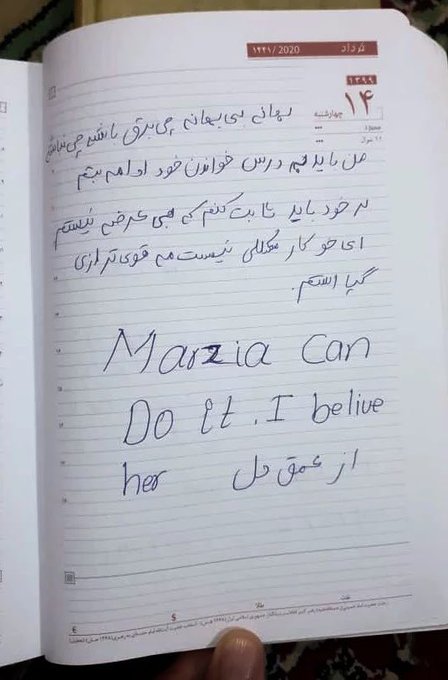 خرداد
۱۴۴۱/2020
۱۳۹۹
۱۴
چهارشنبه
بهانه بی بهانه چی برق باشه چی نباشه
من باید به درس خواندن خود ادامه بتم
به خود باید ثابت کنم که بی عرضه نیستم
ای خو کار مشکلی نیست مه قوی تر ازی
گپا استم.
Marzia Can
Do It. I belive
her از عمق دل